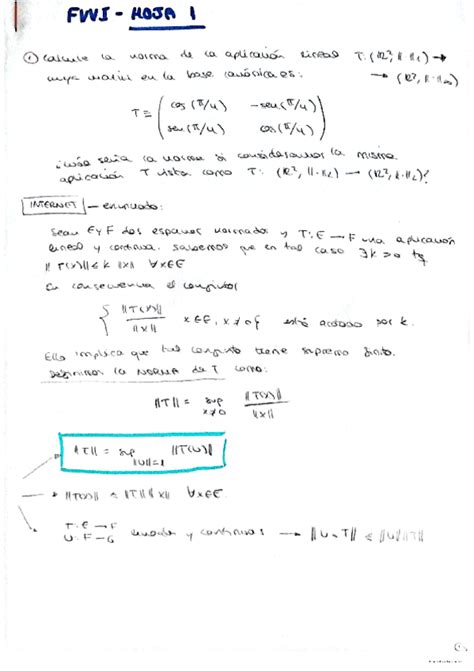 FVVI - HOJA 1
① Calcule la norma de la aplicación lineal T: (ℝ², ‖·‖₁) →
cuya matriz en la base canónica es: → (ℝ², ‖·‖∞)
T ≡ ( cos (π/4) -sen (π/4)
sen (π/4) cos (π/4) )
¿Cuál sería la norma si consideramos la misma
aplicación T vista como T: (ℝ², ‖·‖₁) → (ℝ², ‖·‖₁)?
INTERNET - enunciado:
Sean E y F dos espacios normados y T: E → F una aplicación
lineal y continua. Sabemos que en tal caso ∃ k > 0 tq
‖T(x)‖ ≤ k ‖x‖ ∀x∈E
En consecuencia el conjunto
{ ‖T(x)‖ / ‖x‖ x∈E, x≠0 } está acotado por k.
Ello implica que tal conjunto tiene supremo finito.
Definimos la NORMA de T como:
‖T‖ = sup x≠0 ‖T(x)‖ / ‖x‖
‖T‖ = sup ‖U‖=1 ‖T(U)‖
→ ‖T(x)‖ ≤ ‖T‖ ‖x‖ ∀x∈E.
T: E → F
U: F → G lineales y continuas → ‖U∘T‖ ≤ ‖U‖ ‖T‖